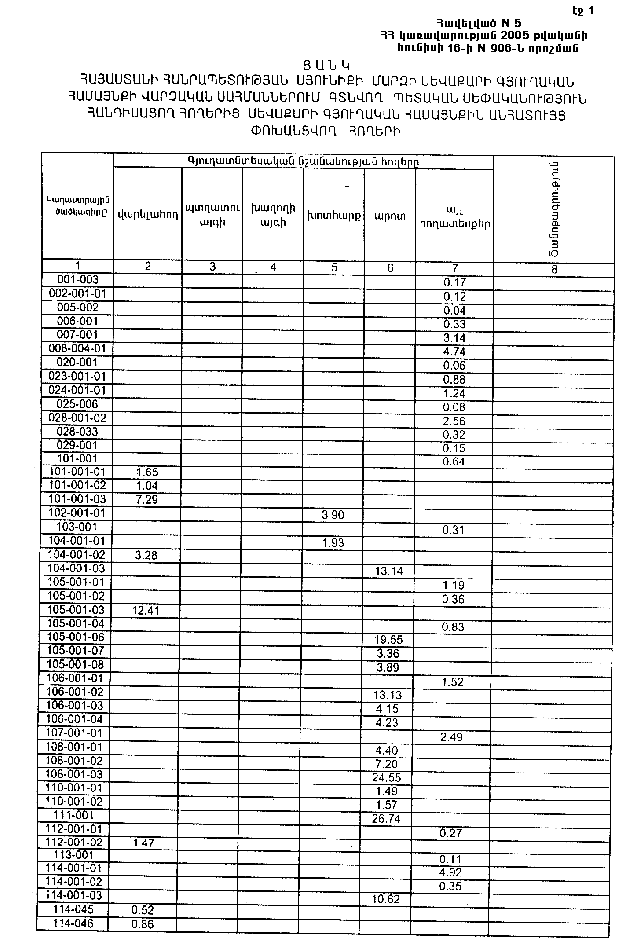 Էջ 1
Հավելված N 5
ՀՀ կառավարության 2005 թվականի
հունիսի 16-ի N 906-Ն որոշման
ՑԱՆԿ
ՀԱՅԱՍՏԱՆԻ ՀԱՆՐԱՊԵՏՈՒԹՅԱՆ ՍՅՈՒՆԻՔԻ ՄԱՐԶԻ ՍԵՎԱՔԱՐԻ ԳՅՈՒՂԱԿԱՆ
ՀԱՄԱՅՆՔԻ ՎԱՐՉԱԿԱՆ ՍԱՀՄԱՆՆԵՐՈՒՄ ԳՏՆՎՈՂ ՊԵՏԱԿԱՆ ՍԵՓԱԿԱՆՈՒԹՅՈՒՆ
ՀԱՆԴԻՍԱՑՈՂ ՀՈՂԵՐԻՑ ՍԵՎԱՔԱՐԻ ԳՅՈՒՂԱԿԱՆ ՀԱՄԱՅՆՔԻՆ ԱՆՀԱՏՈՒՅՑ
ՓՈԽԱՆՑՎՈՂ ՀՈՂԵՐԻ
Գյուղատնտեսական նշանակության հողերը
Կադաստրային
ծածկագիրը
վարելահող
պտղատու
այգի
խաղողի
այգի
խոտհարք
արոտ
այլ
հողատեսքեր
Ծանոթություն
1 2 3 4 5 6 7 8
001-003 0.17
002-001-01 0.12
005-002 0.04
006-001 0.33
007-001 3.14
008-004-01 4.74
020-001 0.06
023-001-01 0.88
024-001-01 1.24
025-006 0.08
028-001-02 2.56
028-033 0.32
029-001 0.15
101-001 0.64
101-001-01 1.65
101-001-02 1.04
101-001-03 7.29
102-001-01 3.90
103-001 0.31
104-001-01 1.93
104-001-02 3.28
104-001-03 13.14
105-001-01 1.19
105-001-02 0.36
105-001-03 12.41
105-001-04 0.83
105-001-06 19.55
105-001-07 3.36
105-001-08 3.89
106-001-01 1.52
106-001-02 13.13
106-001-03 4.15
106-001-04 4.23
107-001-01 2.49
108-001-01 4.40
108-001-02 7.20
108-001-03 24.55
110-001-01 1.49
110-001-02 1.57
111-001 26.74
112-001-01 0.27
112-001-02 1.47
113-001 0.11
114-001-01 4.92
114-001-02 0.35
114-001-03 10.62
114-045 0.52
114-046 0.86